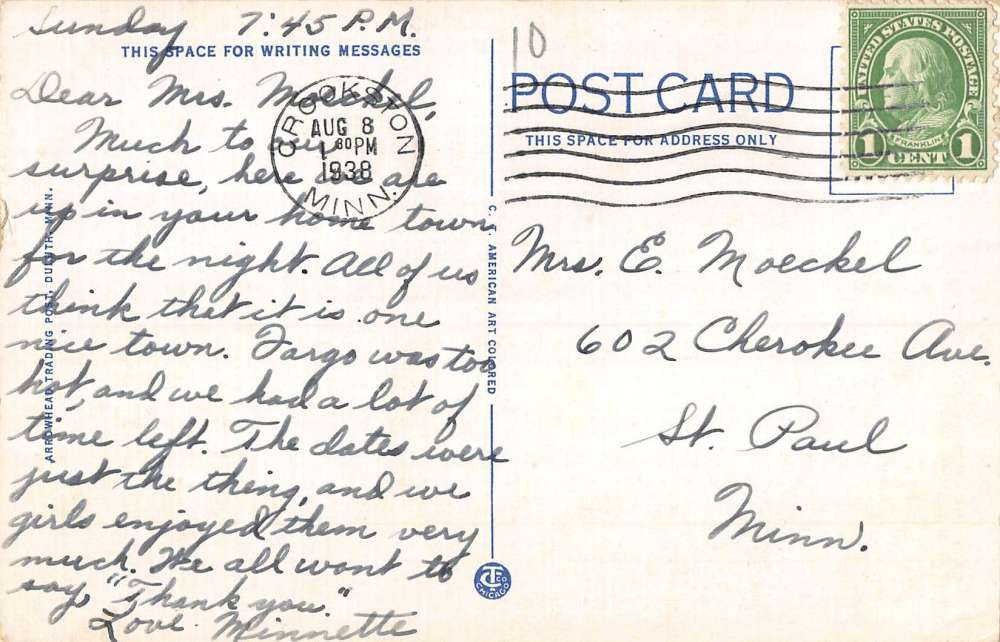 Sunday 7:45 P.M.
THIS SPACE FOR WRITING MESSAGES
Dear Mrs. Moeckel,
Much to our
surprise, here we are
up in your home town
for the night. All of us
think that it is one
nice town. Fargo was too
hot, and we had a lot of
time left. The dates were
just the thing, and we
girls enjoyed them very
much. We all want to
say, "Thank you."
Love Minnette
ARROWHEAD TRADING POST, DULUTH, MINN.
CROOKSTON
AUG 8
1 30 PM
1938
MINN.
C. T. AMERICAN ART COLORED
CT CO
CHICAGO
10
POST CARD
THIS SPACE FOR ADDRESS ONLY
UNITED STATES POSTAGE
FRANKLIN
1 CENT 1
Mrs. E. Moeckel
602 Cherokee Ave.
St. Paul
Minn.